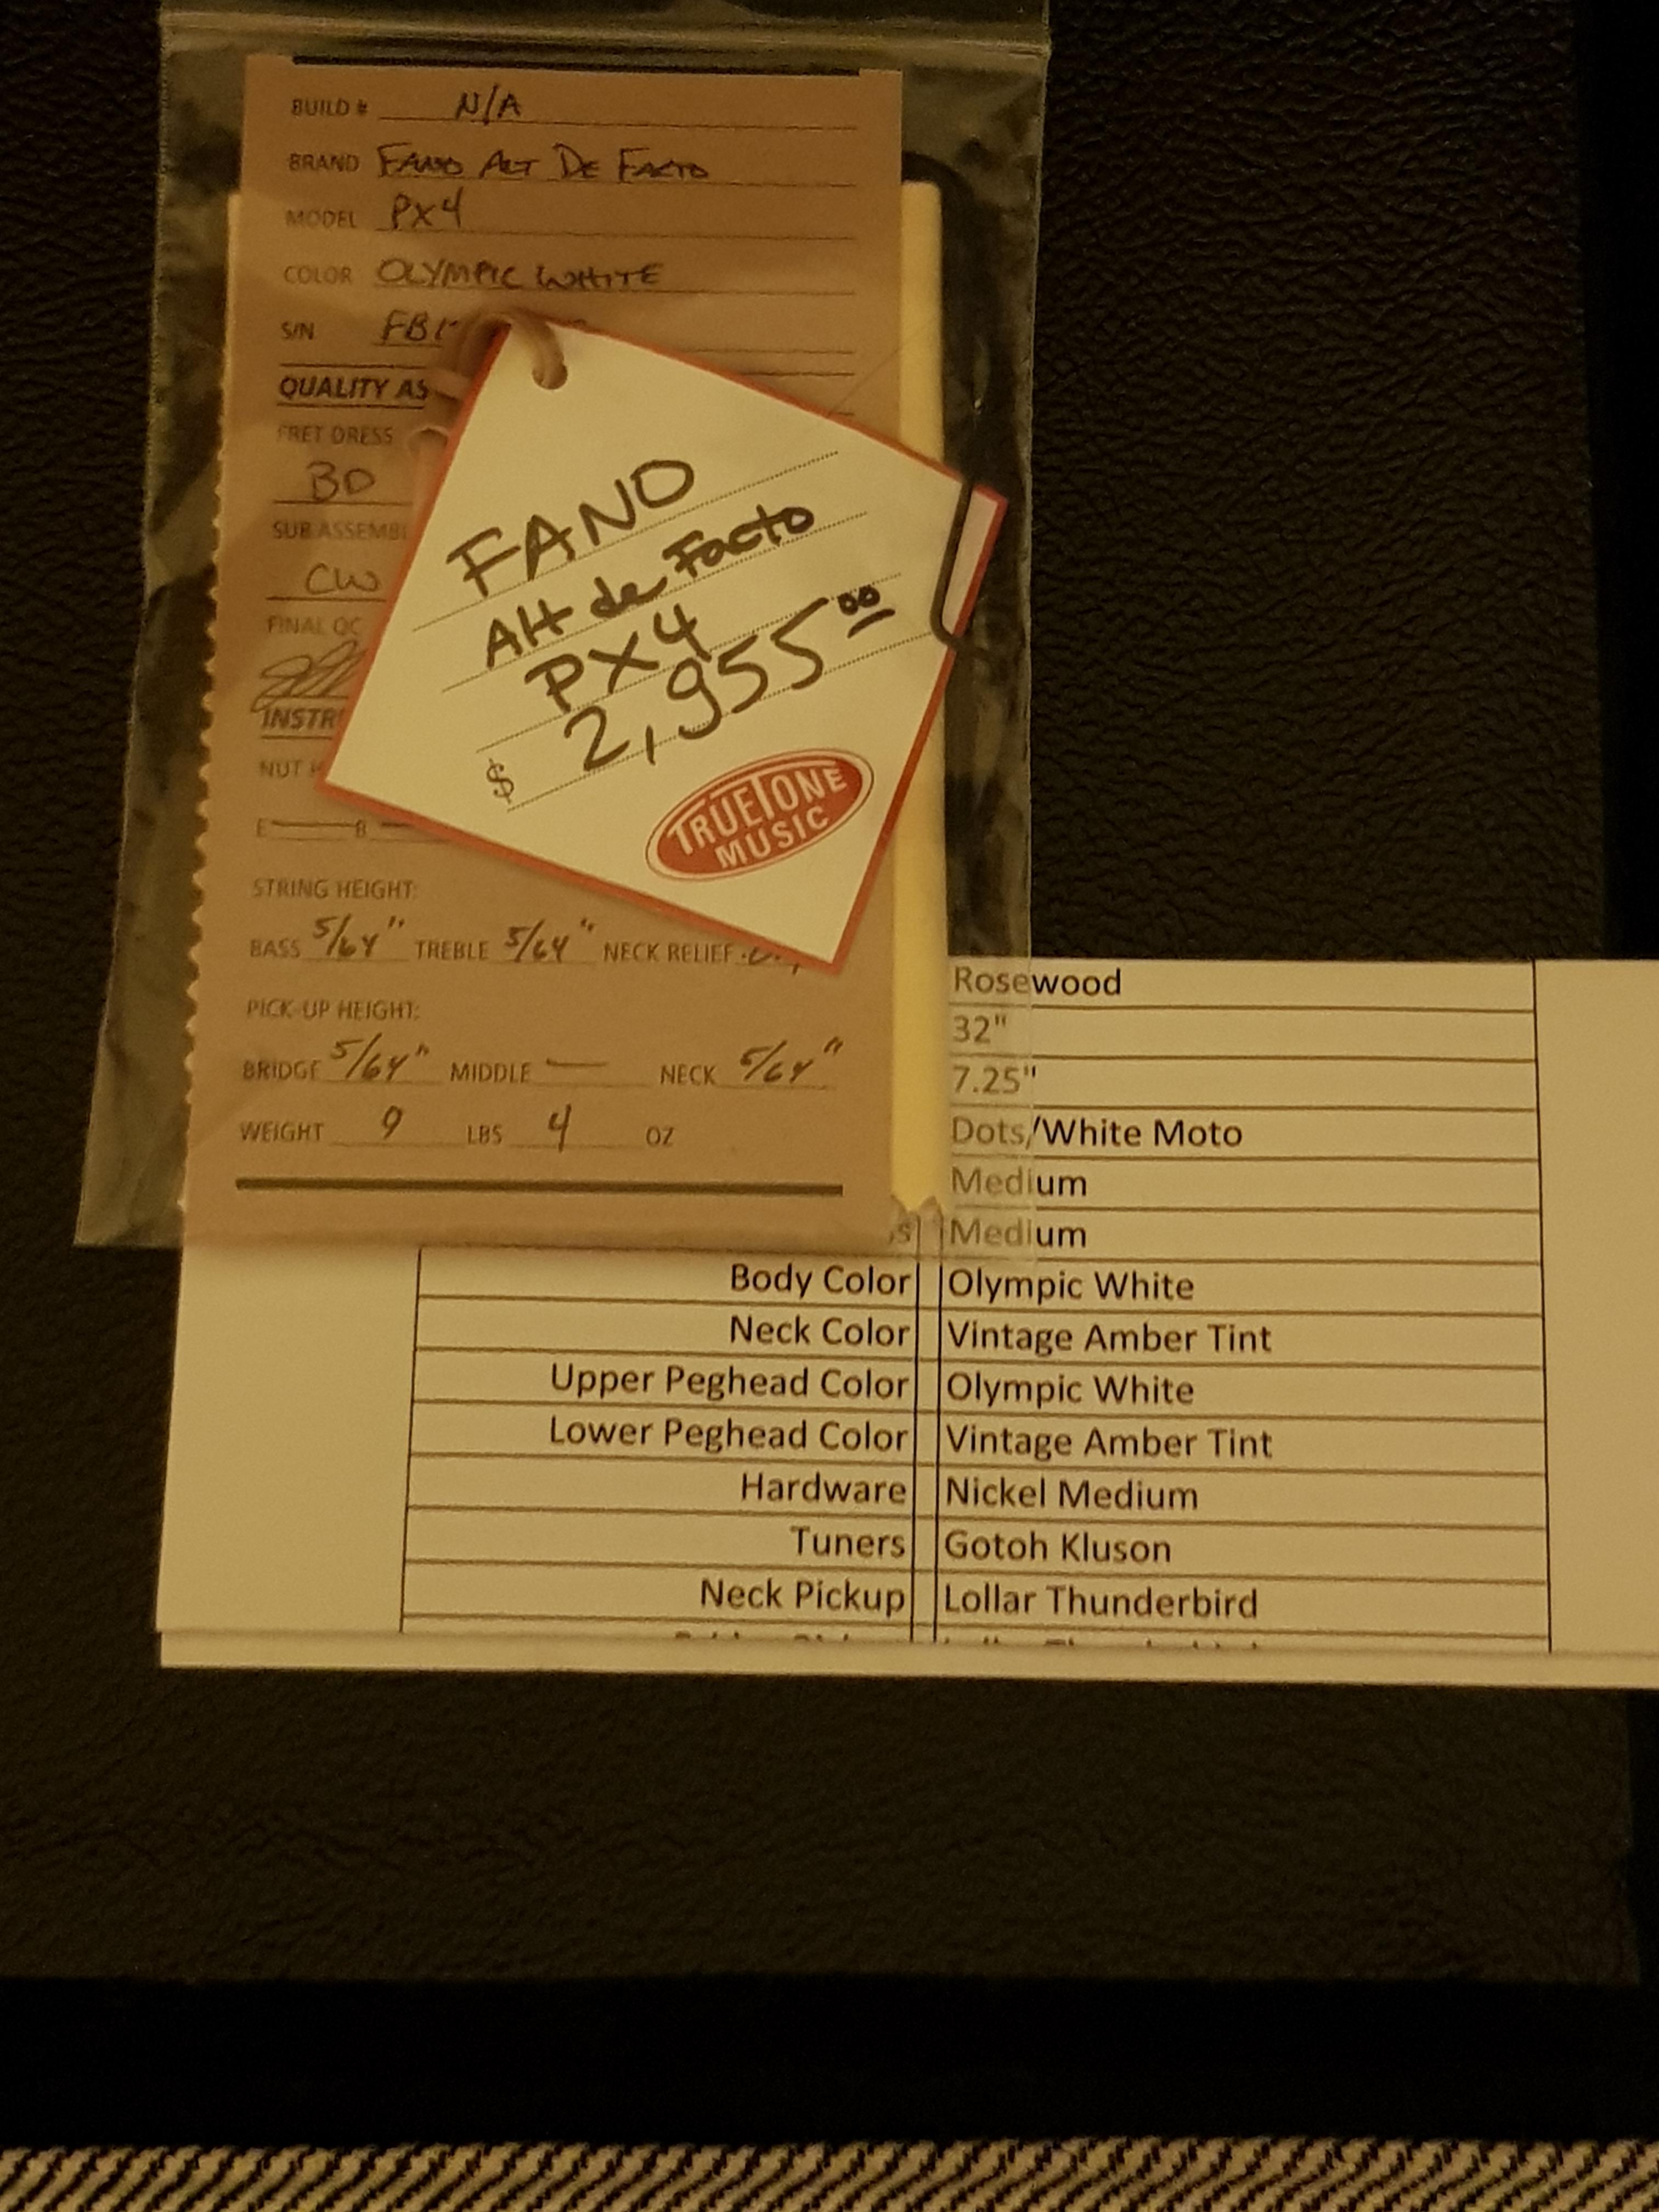 BUILD # N/A
BRAND FANO ALT DE FACTO
MODEL PX4
COLOR OLYMPIC WHITE
S/N FB1
QUALITY AS
FRET DRESS
BD
SUB ASSEMBL
CW
FINAL QC
INSTR
NUT H
E B
STRING HEIGHT:
BASS 5/64" TREBLE 5/64" NECK RELIEF
PICK-UP HEIGHT:
BRIDGE 5/64" MIDDLE — NECK 5/64"
WEIGHT 9 LBS 4 OZ
FANO
Alt de Facto
PX4
$ 2,955.00
TRUETONE
MUSIC
Rosewood
32"
7.25"
Dots/White Moto
Medium
s Medium
Body Color Olympic White
Neck Color Vintage Amber Tint
Upper Peghead Color Olympic White
Lower Peghead Color Vintage Amber Tint
Hardware Nickel Medium
Tuners Gotoh Kluson
Neck Pickup Lollar Thunderbird